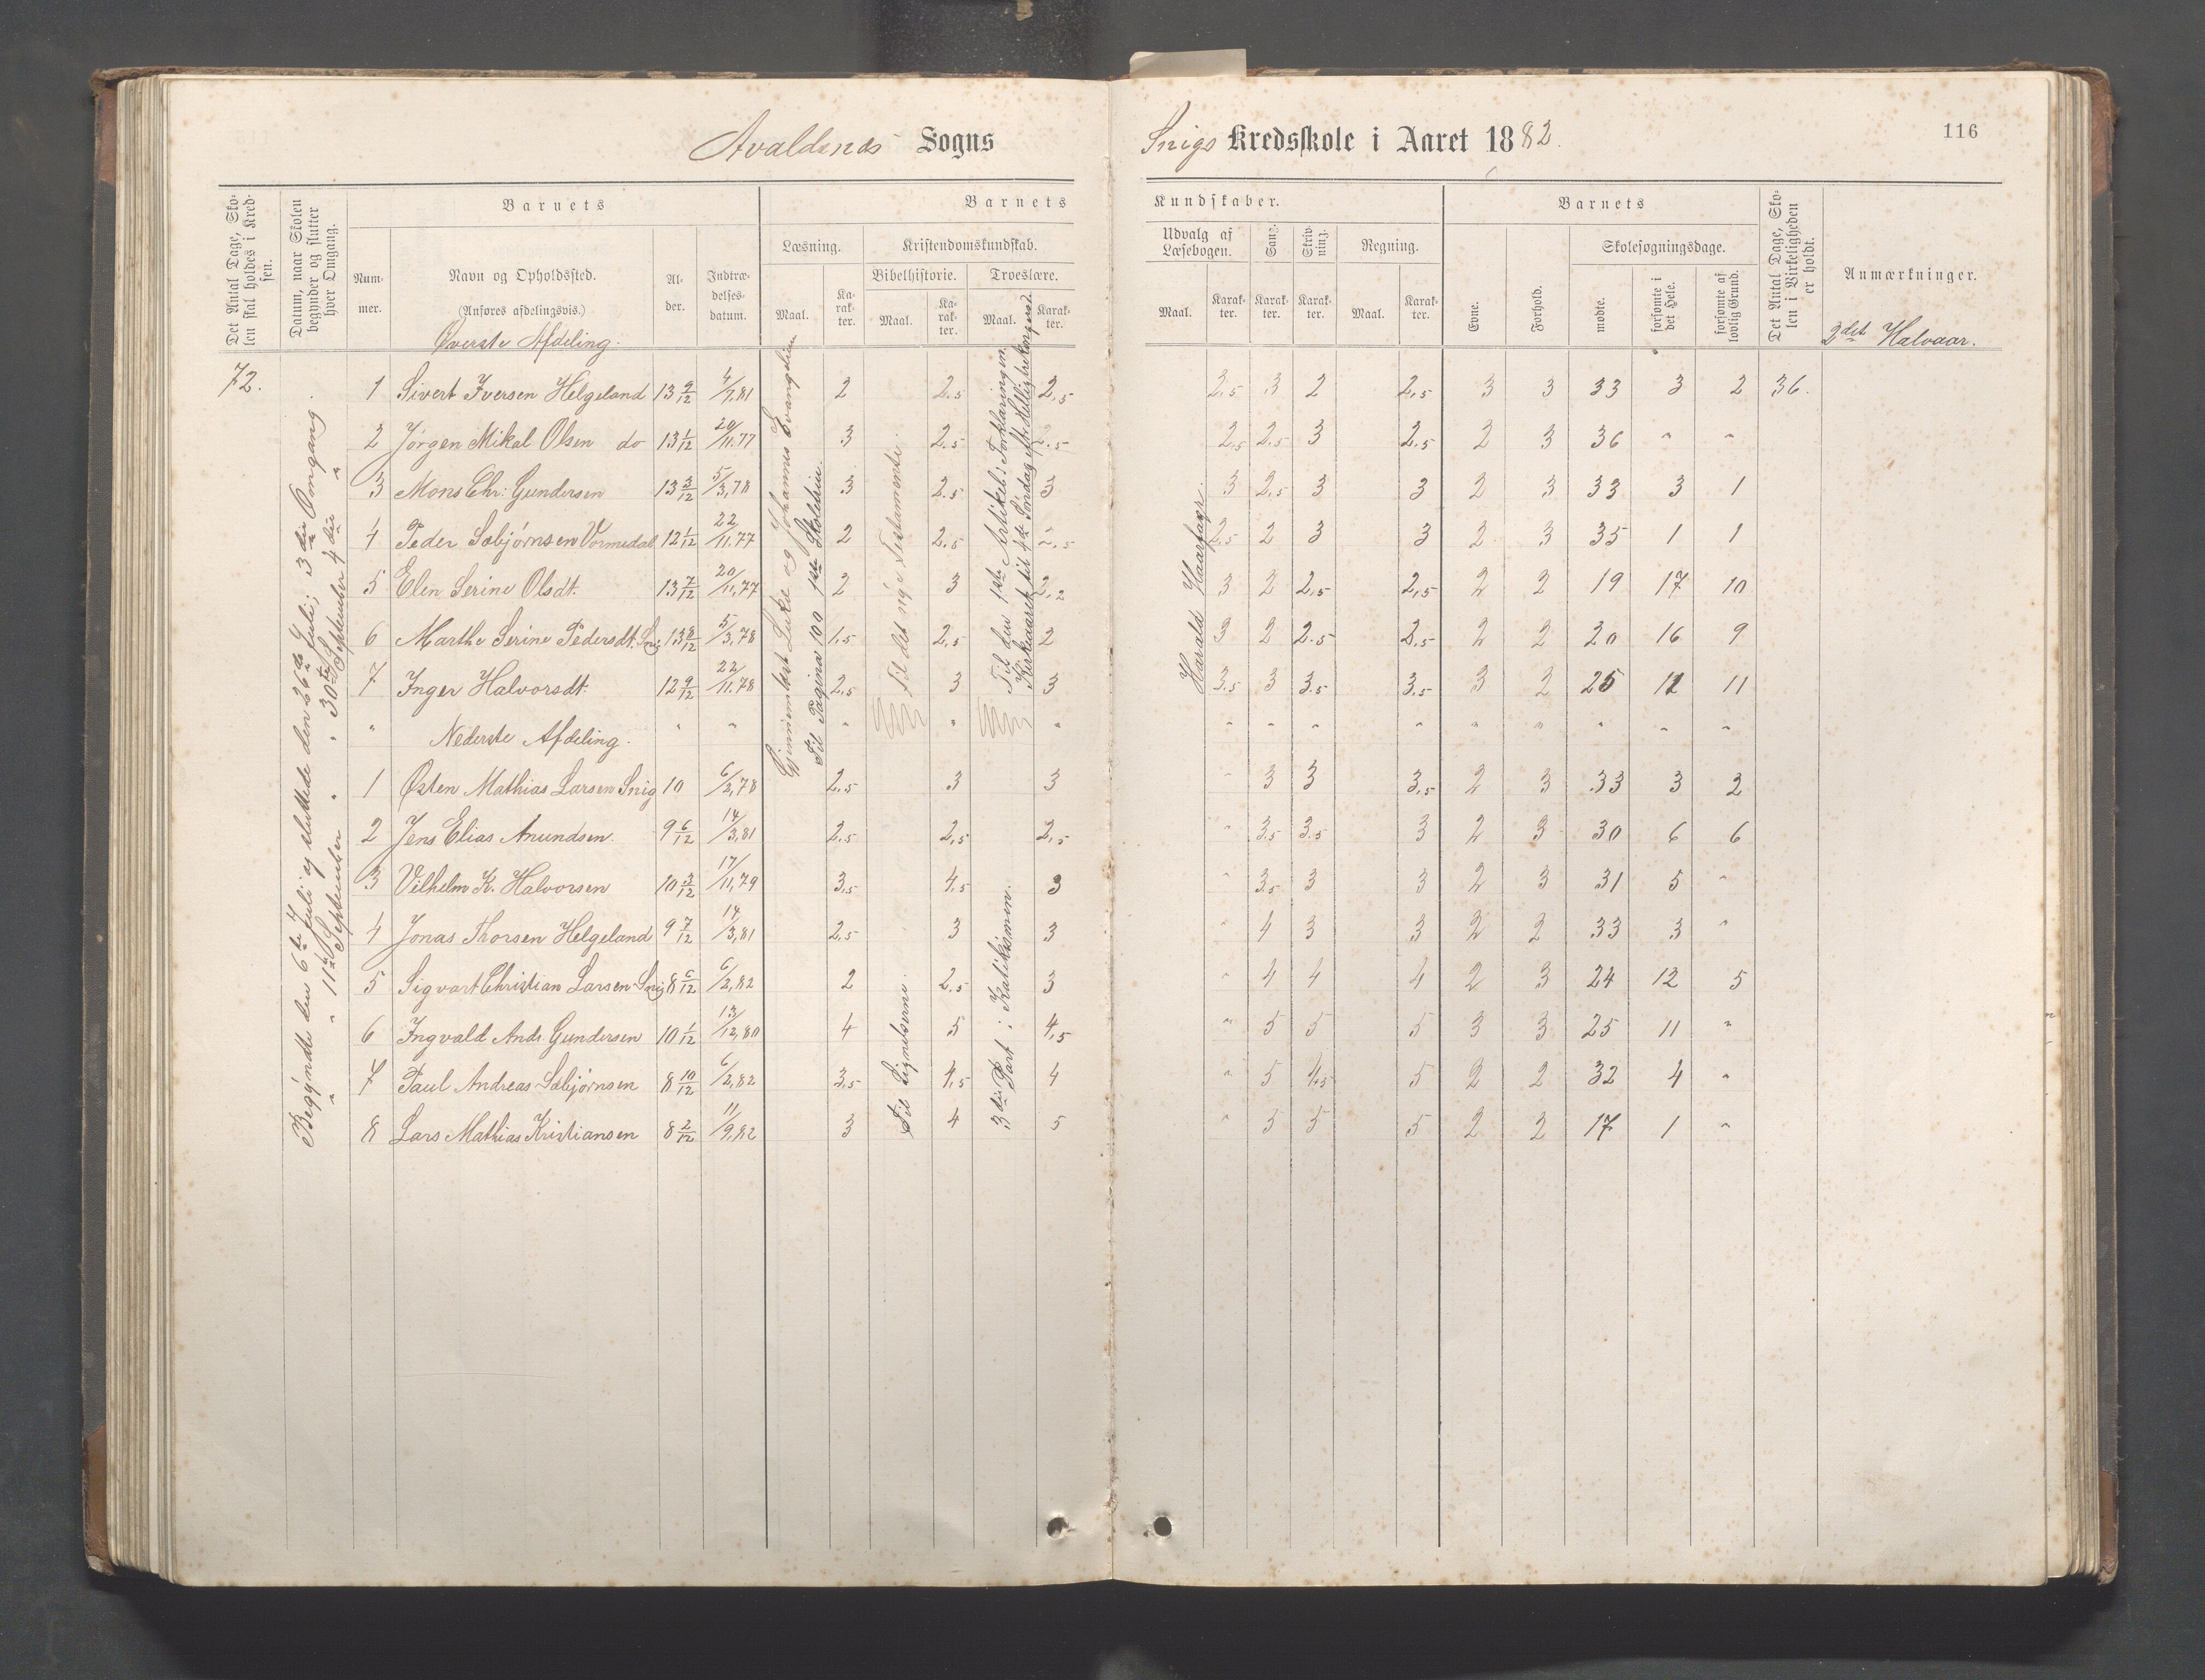 Avaldsnes Sogns
Snigs Kredsskole i Aaret 1882.
116
Det Antal Dage, Skolen skal holdes i Kredsen.
Datum, naar Skolen begynder og slutter hver Omgang.
Barnets
Nummer.
Navn og Opholdssted.
(Anføres afdelingsvis.)
Alder.
Indtrædelsesdatum.
Barnets
Læsning.
Kristendomskundskab.
Bibelhistorie.
Troeslære.
Maal.
Karakter.
Maal.
Karakter.
Maal.
Karakter.
Kundskaber.
Udvalg af Læsebogen.
Sang.
Skrivning.
Regning.
Maal.
Karakter.
Karakter.
Karakter.
Maal.
Karakter.
Barnets
Evne.
Forhold.
Skolesøgningsdage.
mødte.
forsømte i det Hele.
forsømte af lovlig Grund.
Det Antal Dage, Skolen i Virkeligheden er holdt.
Anmærkninger.
Øverste Afdeling.
2det Halvaar.
72.
Begyndte den 6te Juli og sluttede den 26de Juli; 3die Omgang.
" " 11te September " " 30te September 4die "
Gjennemlæst Lukæ og Johannes Evangelium
Til Pagina 100 1ste Skoletrin.
Til det nye Testamente.
Til den 1ste Artikel i Forklaringen.
Kirkeaaret til 4de Søndag eft. Helligtrekongersd.
Harald Haarfagr.
1 Sivert Iversen Helgeland 13 9/12 4/7,81 2 2.5 2,5 2,5 3 2 2,5 3 3 33 3 2 36.
2 Jørgen Mikal Olsen do 13 1/12 20/11.77 3 2.5 2.5 2.5 2.5 3 2.5 2 3 36 " "
3 Mons Chr: Gundersen 13 3/12 5/3,78 3 2.5 3 3 2,5 3 3 2 3 33 3 1
4 Peder Sæbjørnsen Vormedal 12 1/12 22/11.77 2 2.5 2,5 2.5 2 3 3 2 3 35 1 1
5 Elen Serine Olsdt. 13 7/12 20/11,77 2 3 2,2 3 2 2,5 2,5 2 2 19 17 10
6 Marthe Serine Pedersdt. Snig 13 8/12 5/3,78 1.5 2,5 2 3 2 2.5 2.5 2 2 20 16 9
7 Inger Halvorsdt. 12 9/12 22/11.78 2,5 3 3 3.5 3 3.5 3.5 3 2 25 11 11
" Nederste Afdeling. " " " " " " " " " " " " " "
Til Lignelserne.
3die Part i Katekismen.
1 Østen Mathias Larsen Snig 10 6/2,78 2,5 3 3 " 3 3 3.5 2 3 33 3 2
2 Jens Elias Anundsen. 9 6/12 14/3,81 2.5 2,5 2,5 " 3.5 3.5 3 2 3 30 6 6
3 Vilhelm K. Halvorsen 10 3/12 17/11,79 3,5 4,5 3 " 3,5 3 3 2 3 31 5 "
4 Jonas Thorsen Helgeland 9 7/12 14/3,81 2,5 3 3 " 4 3 3 2 2 33 3 "
5 Sigvart Christian Larsen Snig 8 6/12 6/2,82 2 2.5 3 " 4 4 4 2 3 24 12 5
6 Ingvald Andr. Gundersen 10 1/12 13/12,80 4 5 4,5 " 5 5 5 3 3 25 11 "
7 Paul Andreas Sæbjørnsen 8 10/12 6/2,82 3,5 4,5 4 " 5 4,5 5 2 2 32 4 "
8 Lars Mathias Kristiansen 8 2/12 11/9,82 3 4 5 " 5 5 5 2 2 17 1 "